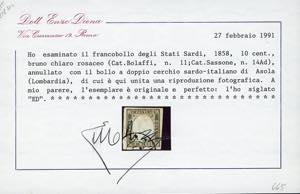 Dott. Enzo Diena
Via Crescenzio 19, Roma
27 febbraio 1991
Ho esaminato il francobollo degli Stati Sardi, 1858, 10 cent.,
bruno chiaro rosaceo (Cat.Bolaffi, n. 11;Cat.Sassone, n. 14Ad),
annullato con il bollo a doppio cerchio sardo-italiano di Asola
(Lombardia), di cui è qui unita una riproduzione fotografica. A
mio parere, l'esemplare è originale e perfetto: l'ho siglato
"ED". * * * * * * * * * * * * * * * * * * * * * * * * * * * *